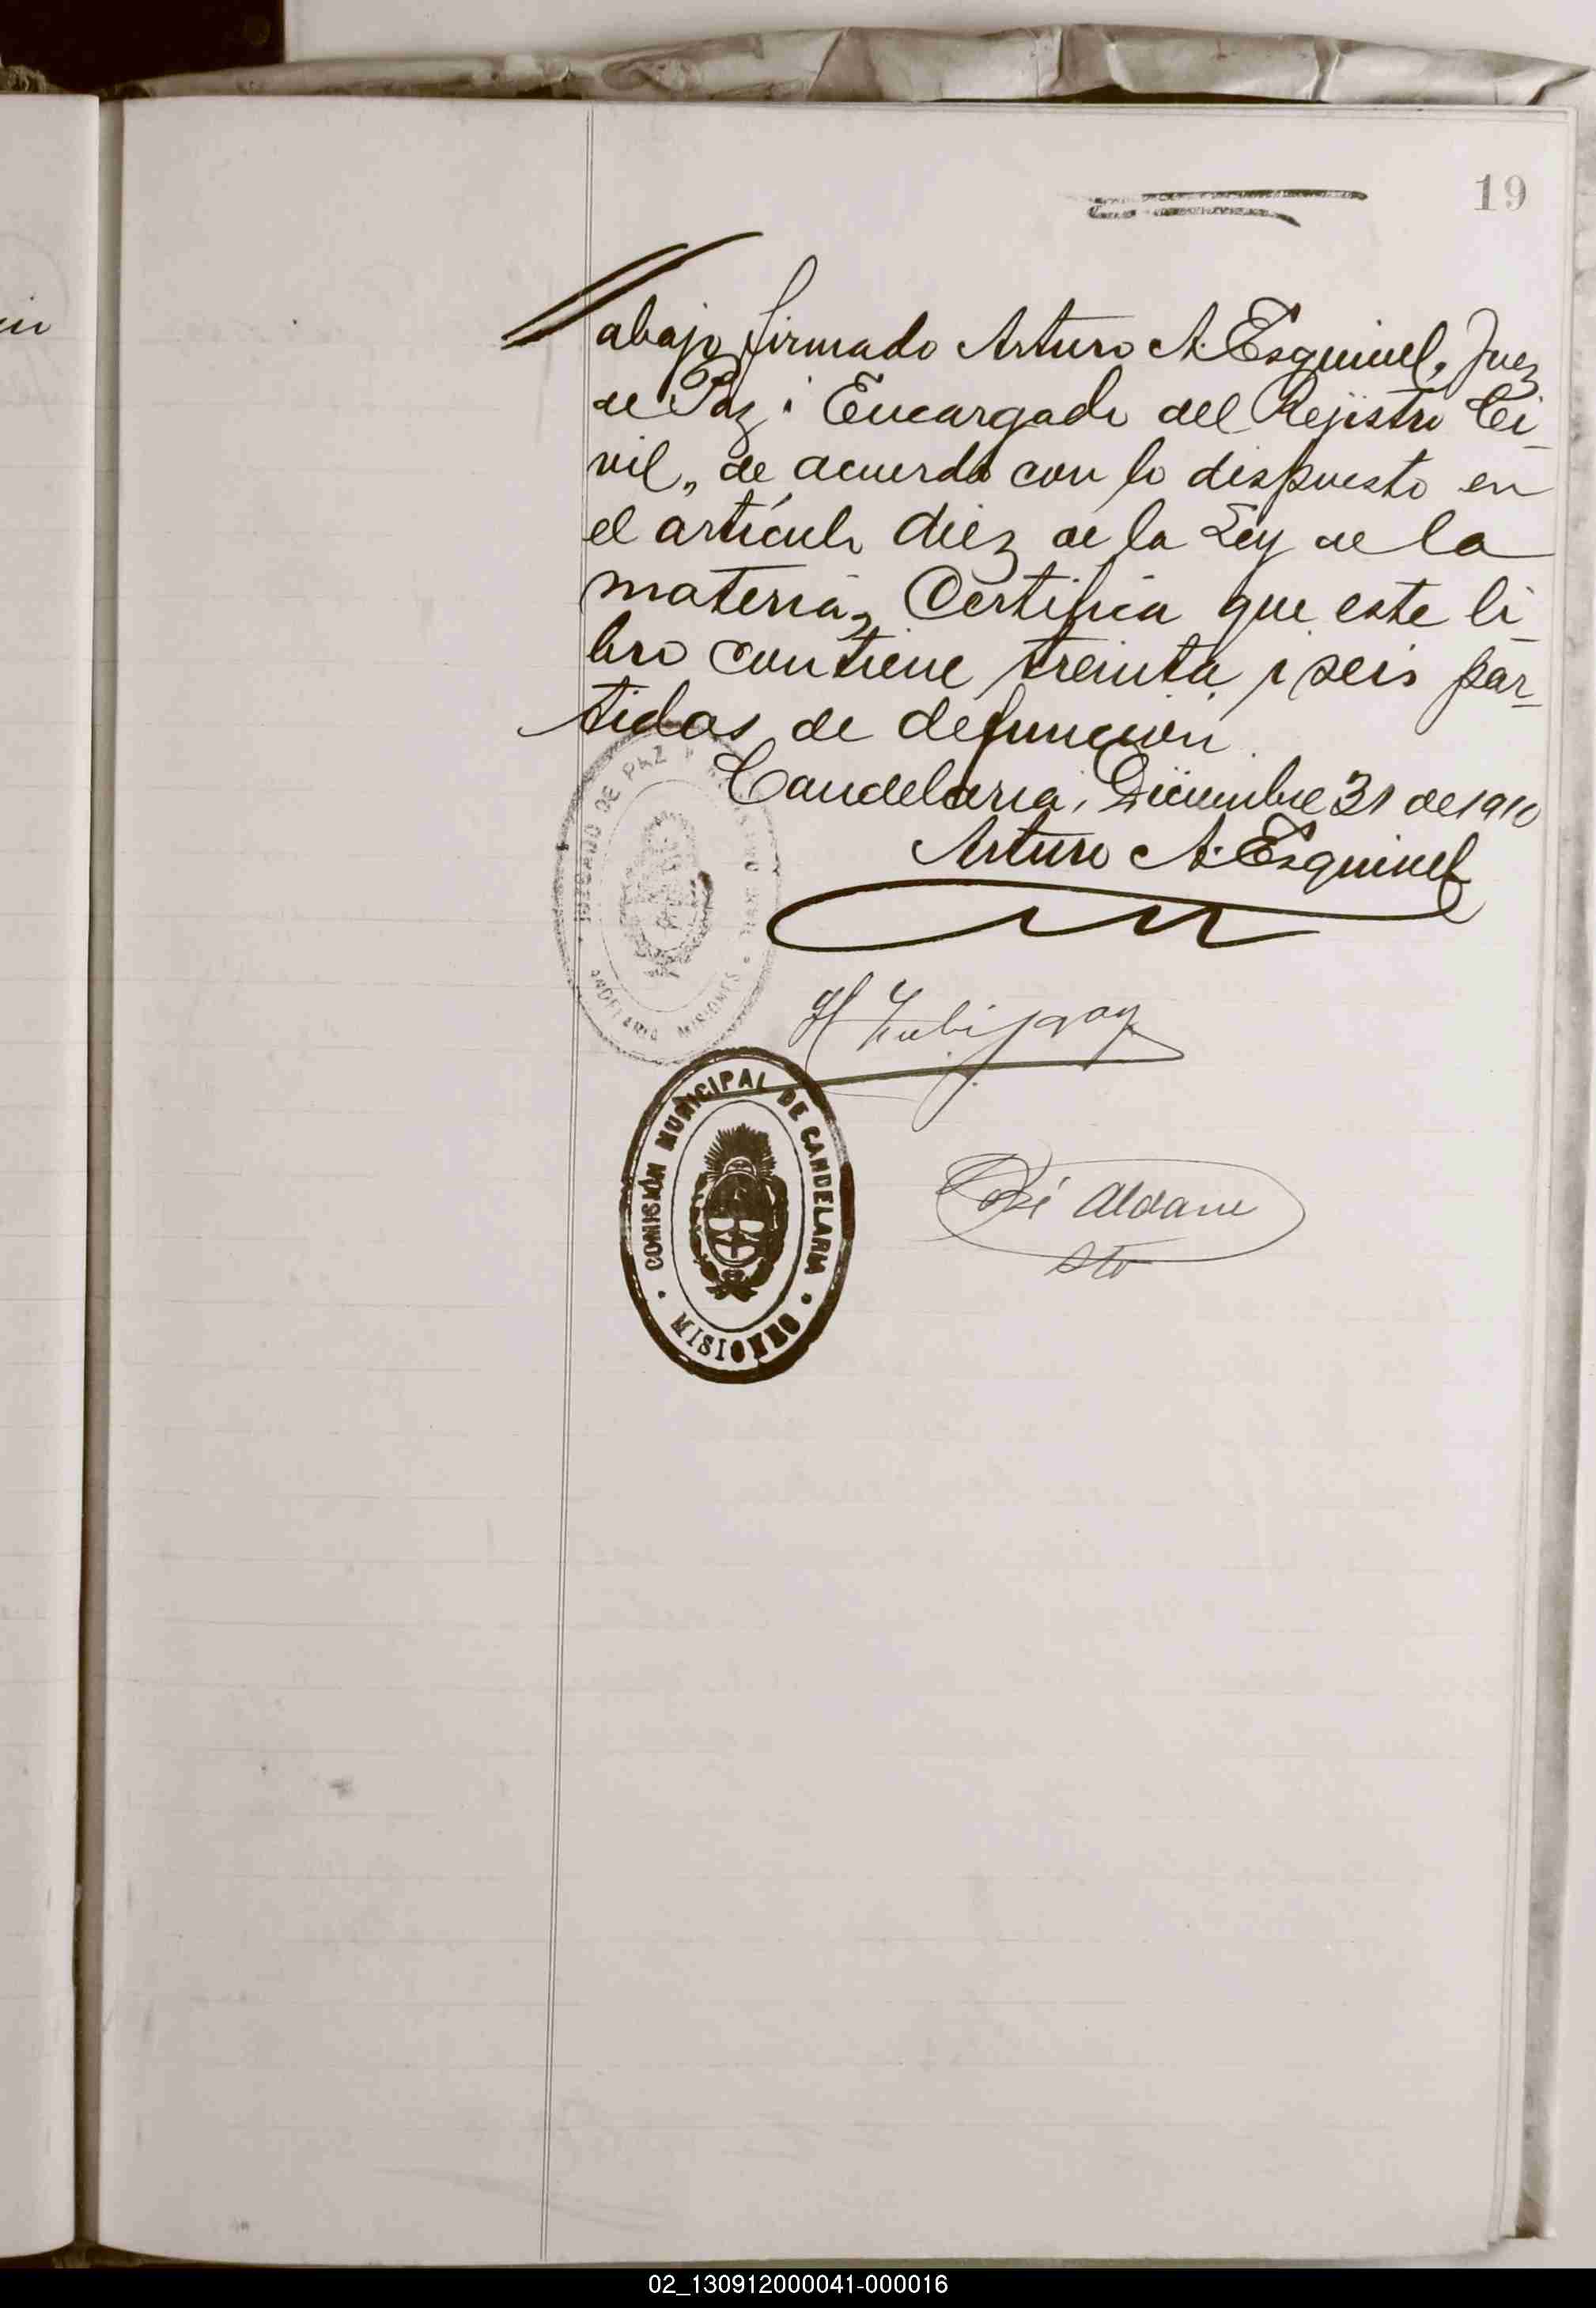 19
abajo firmado Arturo A. Esquivel, Juez
de Paz i Encargado del Rejistro Ci-
vil, de acuerdo con lo dispuesto en
el artículo diez de la Ley de la
materia, Certifica que este li-
bro contiene treinta i seis par-
tidas de defuncion
Candelaria, Diciembre 31 de 1910
Arturo A. Esquivel
JUZGADO DE PAZ
CANDELARIA MISIONES
COMISIÓN MUNICIPAL DE CANDELARIA
MISIONES
José Aldama
Sto
02_130912000041-000016